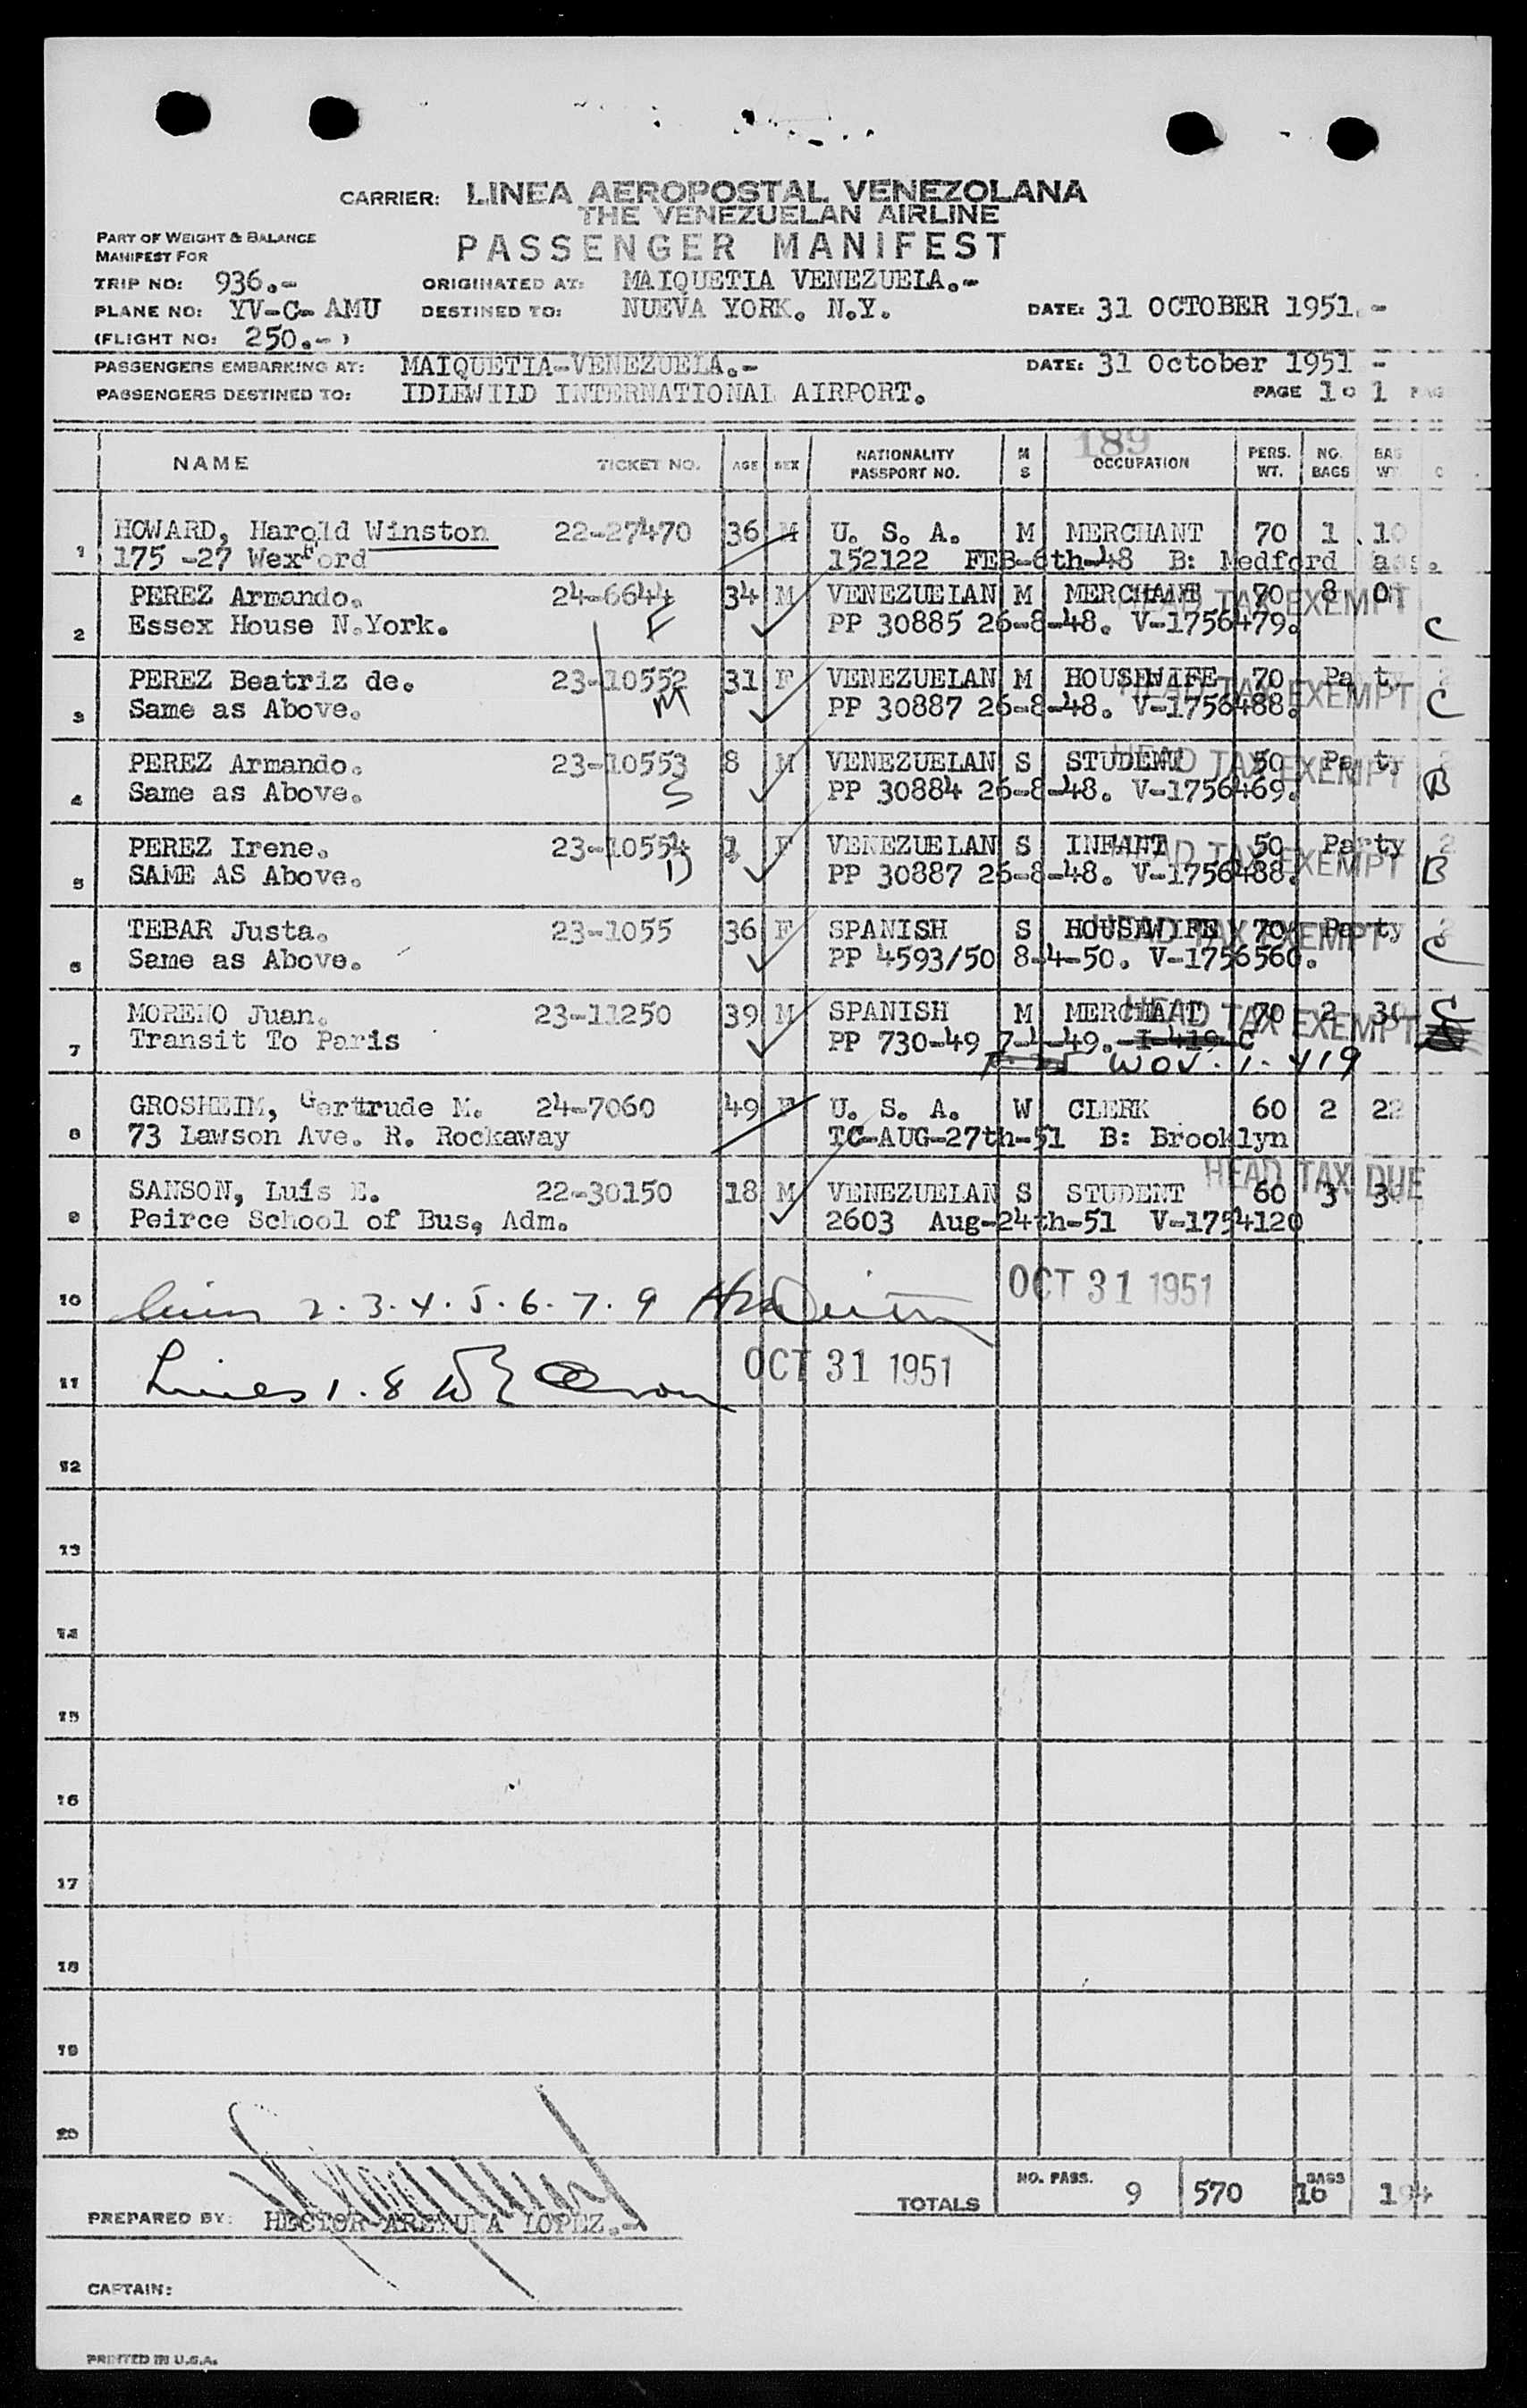 CARRIER: LINEA AEROPOSTAL VENEZOLANA
THE VENEZUELAN AIRLINE
PART OF WEIGHT & BALANCE
MANIFEST FOR
PASSENGER MANIFEST
TRIP NO: 936.- ORIGINATED AT: MAIQUETIA VENEZUELA.-
PLANE NO: YV-C- AMU DESTINED TO: NUEVA YORK. N.Y. DATE: 31 OCTOBER 1951.-
(FLIGHT NO: 250.-)
PASSENGERS EMBARKING AT: MAIQUETIA-VENEZUELA.- DATE: 31 October 1951 -
PASSENGERS DESTINED TO: IDLEWILD INTERNATIONAL AIRPORT. PAGE 1 o 1
189
NAME TICKET NO. AGE SEX NATIONALITY PASSPORT NO. M S OCCUPATION PERS. WT. NO. BAGS BAG WT.
1 HOWARD, Harold Winston 22-27470 36 M U. S. A. M MERCHANT 70 1 10
175 -27 Wexford 152122 FEB-6th-48 B: Medford
2 PEREZ Armando. 24-6644 34 M VENEZUELAN M MERCHANT 70 8 HEAD TAX EXEMPT
Essex House N.York. F PP 30885 26-8-48. V-1756479. C
3 PEREZ Beatriz de. 23-10552 31 F VENEZUELAN M HOUSEWIFE 70 Pa ty HEAD TAX EXEMPT
Same as Above. M PP 30887 26-8-48. V-1756488. C
4 PEREZ Armando. 23-10553 8 M VENEZUELAN S STUDENT 50 Pa ty HEAD TAX EXEMPT
Same as Above. S PP 30884 26-8-48. V-1756469. B
5 PEREZ Irene. 23-10554 1 F VENEZUELAN S INFANT 50 Party HEAD TAX EXEMPT
SAME AS Above. D PP 30887 26-8-48. V-1756488. B
6 TEBAR Justa. 23-1055 36 F SPANISH S HOUSEWIFE 70 Party HEAD TAX EXEMPT
Same as Above. PP 4593/50 8-4-50. V-1756560. C
7 MORENO Juan. 23-11250 39 M SPANISH M MERCHANT 70 2 30 HEAD TAX EXEMPT
Transit To Paris PP 730-49 7-4-49. I-419-C
WOV. 1- 419
8 GROSHEIM, Gertrude M. 24-7060 49 F U. S. A. W CLERK 60 2 22
73 Lawson Ave. R. Rockaway TC-AUG-27th-51 B: Brooklyn
HEAD TAX DUE
9 SANSON, Luís E. 22-30150 18 M VENEZUELAN S STUDENT 60 3 3
Peirce School of Bus, Adm. 2603 Aug-24th-51 V-1754120
10 2.3.4.5.6.7.9 OCT 31 1951
11 Lines 1.8 OCT 31 1951
12
13
14
15
16
17
18
19
20
TOTALS NO. PASS. 9 570 BAGS 16 194
PREPARED BY: HECTOR LOPEZ.-
CAPTAIN:
PRINTED IN U.S.A.